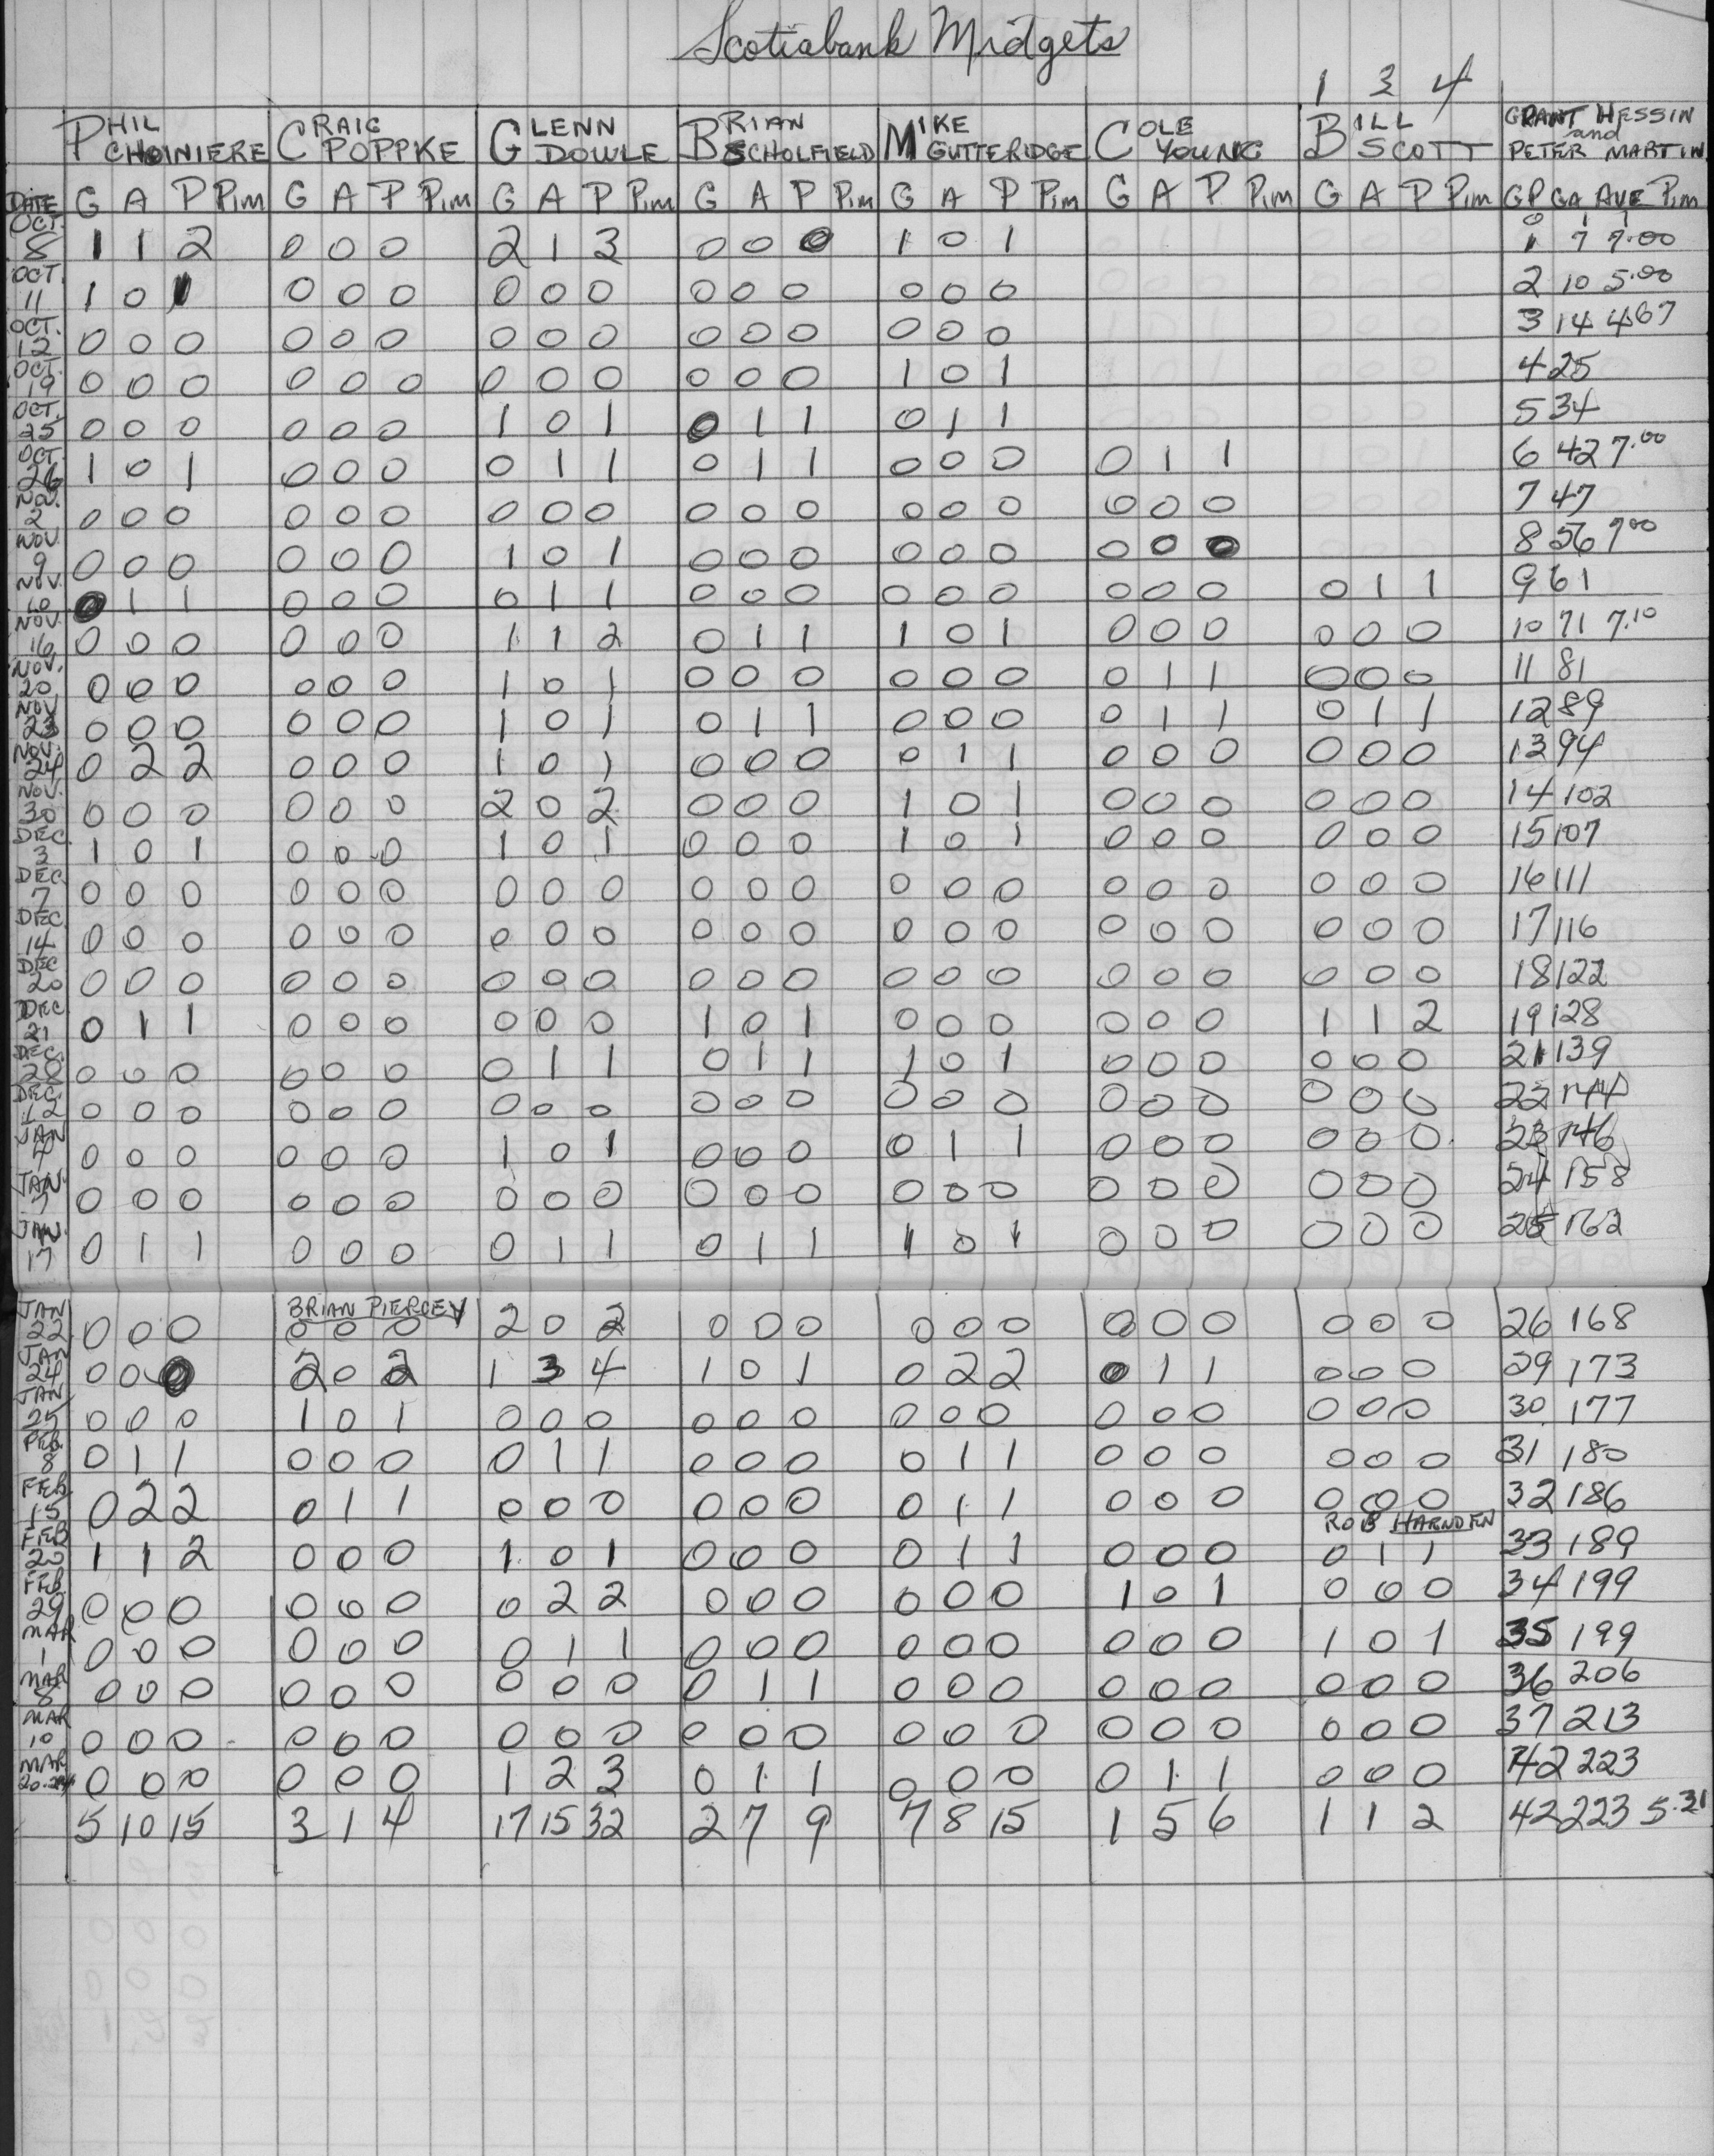 Scotiabank Midgets
1 3 4
PHIL CHOINIERE CRAIG POPPKE GLENN DOWLE BRIAN SCHOLFIELD MIKE GUTTERIDGE COLE YOUNG BILL SCOTT GRANT HESSIN and PETER MARTIN
DATE G A P Pim G A P Pim G A P Pim G A P Pim G A P Pim G A P Pim G A P Pim GP GA AVE Pim
OCT. 8 1 1 2 0 0 0 2 1 3 0 0 0 1 0 1 1 7 7.00
OCT. 11 1 0 1 0 0 0 0 0 0 0 0 0 0 0 0 2 10 5.00
OCT. 12 0 0 0 0 0 0 0 0 0 0 0 0 0 0 0 3 14 4.67
OCT. 19 0 0 0 0 0 0 0 0 0 0 0 0 1 0 1 4 25
OCT. 25 0 0 0 0 0 0 1 0 1 0 1 1 0 1 1 5 34
OCT. 26 1 0 1 0 0 0 0 1 1 0 1 1 0 0 0 0 1 1 6 42 7.00
NOV. 2 0 0 0 0 0 0 0 0 0 0 0 0 0 0 0 0 0 0 7 47
NOV. 9 0 0 0 0 0 0 1 0 1 0 0 0 0 0 0 0 0 0 8 56 7.00
NOV. 10 0 1 1 0 0 0 0 1 1 0 0 0 0 0 0 0 0 0 0 1 1 9 61
NOV. 16 0 0 0 0 0 0 1 1 2 0 1 1 1 0 1 0 0 0 0 0 0 10 71 7.10
NOV. 20 0 0 0 0 0 0 1 0 1 0 0 0 0 0 0 0 1 1 0 0 0 11 81
NOV. 23 0 0 0 0 0 0 1 0 1 0 1 1 0 0 0 0 1 1 0 1 1 12 89
NOV. 24 0 2 2 0 0 0 1 0 1 0 0 0 0 1 1 0 0 0 0 0 0 13 94
NOV. 30 0 0 0 0 0 0 2 0 2 0 0 0 1 0 1 0 0 0 0 0 0 14 102
DEC. 3 1 0 1 0 0 0 1 0 1 0 0 0 1 0 1 0 0 0 0 0 0 15 107
DEC. 7 0 0 0 0 0 0 0 0 0 0 0 0 0 0 0 0 0 0 0 0 0 16 111
DEC 14 0 0 0 0 0 0 0 0 0 0 0 0 0 0 0 0 0 0 0 0 0 17 116
DEC 20 0 0 0 0 0 0 0 0 0 0 0 0 0 0 0 0 0 0 0 0 0 18 122
DEC. 21 0 1 1 0 0 0 0 0 0 1 0 1 0 0 0 0 0 0 1 1 2 19 128
DEC. 28 0 0 0 0 0 0 0 1 1 0 1 1 1 0 1 0 0 0 0 0 0 21 139
DEC. 0 0 0 0 0 0 0 0 0 0 0 0 0 0 0 0 0 0 0 0 0 22 144
JAN 4 0 0 0 0 0 0 1 0 1 0 0 0 0 1 1 0 0 0 0 0 0 23 146
JAN. 0 0 0 0 0 0 0 0 0 0 0 0 0 0 0 0 0 0 0 0 0 24 158
JAN. 17 0 1 1 0 0 0 0 1 1 0 1 1 1 0 1 0 0 0 0 0 0 25 162
BRIAN PIERCEY
JAN 22 0 0 0 0 0 0 2 0 2 0 0 0 0 0 0 0 0 0 0 0 0 26 168
JAN 24 0 0 0 2 0 2 1 3 4 1 0 1 0 2 2 0 1 1 0 0 0 29 173
JAN 25 0 0 0 1 0 1 0 0 0 0 0 0 0 0 0 0 0 0 0 0 0 30 177
FEB. 8 0 1 1 0 0 0 0 1 1 0 0 0 0 1 1 0 0 0 0 0 0 31 180
FEB. 15 0 2 2 0 1 1 0 0 0 0 0 0 0 1 1 0 0 0 0 0 0 32 186
ROB HARNDEN
FEB 20 1 1 2 0 0 0 1 0 1 0 0 0 0 1 1 0 0 0 0 1 1 33 189
FEB. 29 0 0 0 0 0 0 0 2 2 0 0 0 0 0 0 1 0 1 0 0 0 34 199
MAR 1 0 0 0 0 0 0 0 1 1 0 0 0 0 0 0 0 0 0 1 0 1 35 199
MAR 8 0 0 0 0 0 0 0 0 0 0 1 1 0 0 0 0 0 0 0 0 0 36 206
MAR 10 0 0 0 0 0 0 0 0 0 0 0 0 0 0 0 0 0 0 0 0 0 37 213
MAR 20-24 0 0 0 0 0 0 1 2 3 0 1 1 0 0 0 0 1 1 0 0 0 42 223
5 10 15 3 1 4 17 15 32 2 7 9 7 8 15 1 5 6 1 1 2 42 223 5.31